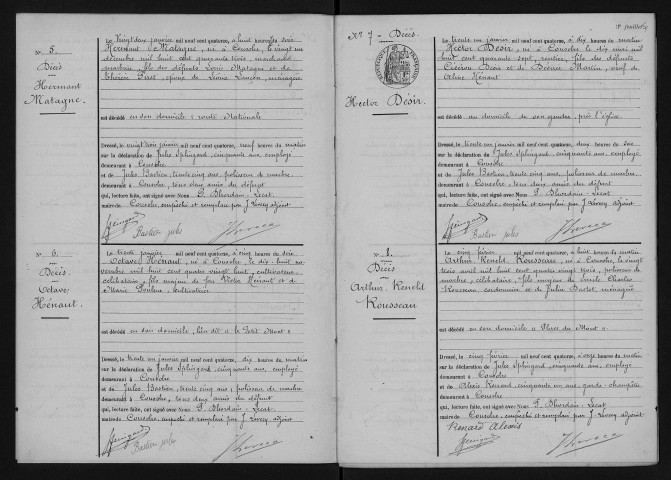 N° 5.
Décès
Hermant
Matagne.
Le vingt deux janvier mil neuf cent quatorze, à huit heures du soir
Hermant Matagne, né à Cousolre, le vingt un
décembre mil huit cent quarante trois, marchand
marbrier, fils des défunts Louis Matagne et de
Thérèse Piset, époux de Léonie Lancin, ménagère
est décédé en son domicile, route Nationale
Dressé, le vingt trois janvier mil neuf cent quatorze, neuf heures du matin
sur la déclaration de Jules Splingard, cinquante ans, employé
demeurant à Cousolre
et de Jules Bastien, trente cinq ans, polisseur de marbre,
demeurant à Cousolre, tous deux amis du défunt
qui, lecture faite, ont signé avec Nous P. Bhordain-Lecat
maire de Cousolre, empêché et remplacé par J. Livecy adjoint
Bastien jules
N° 6.
Décès.
Octave
Hénaut.
Le trente janvier mil neuf cent quatorze, à cinq heures du soir
Octave Hénaut, né à Cousolre, le dix huit no-
vembre mil huit cent quatre vingt huit, cultivateur
célibataire, fils majeur de feu Victor Hénaut et de
Marie Poulain, cultivatrice
est décédé en son domicile, lieu dit « le Petit Mont »
Dressé, le trente un janvier mil neuf cent quatorze, dix heures du matin
sur la déclaration de Jules Splingard, cinquante ans, employé
demeurant à Cousolre
et de Jules Bastien, trente cinq ans, polisseur de marbre
demeurant à Cousolre, tous deux amis du défunt
qui, lecture faite, ont signé avec Nous P. Bhordain-Lecat
maire de Cousolre, empêché et remplacé par J. Livecy adjoint
Bastien jules
N° 7 - Décès.
Hector Désir.
Le trente un janvier mil neuf cent quatorze, à dix heures du matin
Hector Désir, né à Cousolre le dix mai mil
huit cent quarante sept, rentier, fils des défunts
Cicéron Désir et de Désirée Martin, veuf de
Aline Hénaut
est décédé au domicile de son gendre, près l'église
Dressé, le trente un janvier mil neuf cent quatorze, deux heures du soir
sur la déclaration de Jules Splingard, cinquante ans, employé
demeurant à Cousolre
et de Jules Bastien, trente cinq ans, polisseur de marbre,
demeurant à Cousolre, tous deux amis du défunt
qui, lecture faite, ont signé avec Nous P. Bhordain-Lecat
maire de Cousolre, empêché et remplacé par J. Livecy adjoint
Bastien jules
N° 8.
Décès
Arthur Renold
Rousseau
Le cinq février mil neuf cent quatorze, à huit heures du matin
Arthur Renold Rousseau, né à Cousolre, le vingt
trois avril mil huit cent quatre vingt trois, polisseur de
marbre, célibataire, fils majeur de Emile Charles
Rousseau, cordonnier et de Julia Bastet, ménagère
est décédé en son domicile « Place du Mont »
Dressé, le cinq février mil neuf cent quatorze, onze heures du matin
sur la déclaration de Jules Splingard, cinquante ans, employé
demeurant à Cousolre
et de Alexis Renard, cinquante un ans, garde-champêtre
demeurant à Cousolre
qui, lecture faite, ont signé avec Nous P. Bhordain-Lecat
maire de Cousolre, empêché et remplacé par J. Livecy adjoint
Renard Alexis